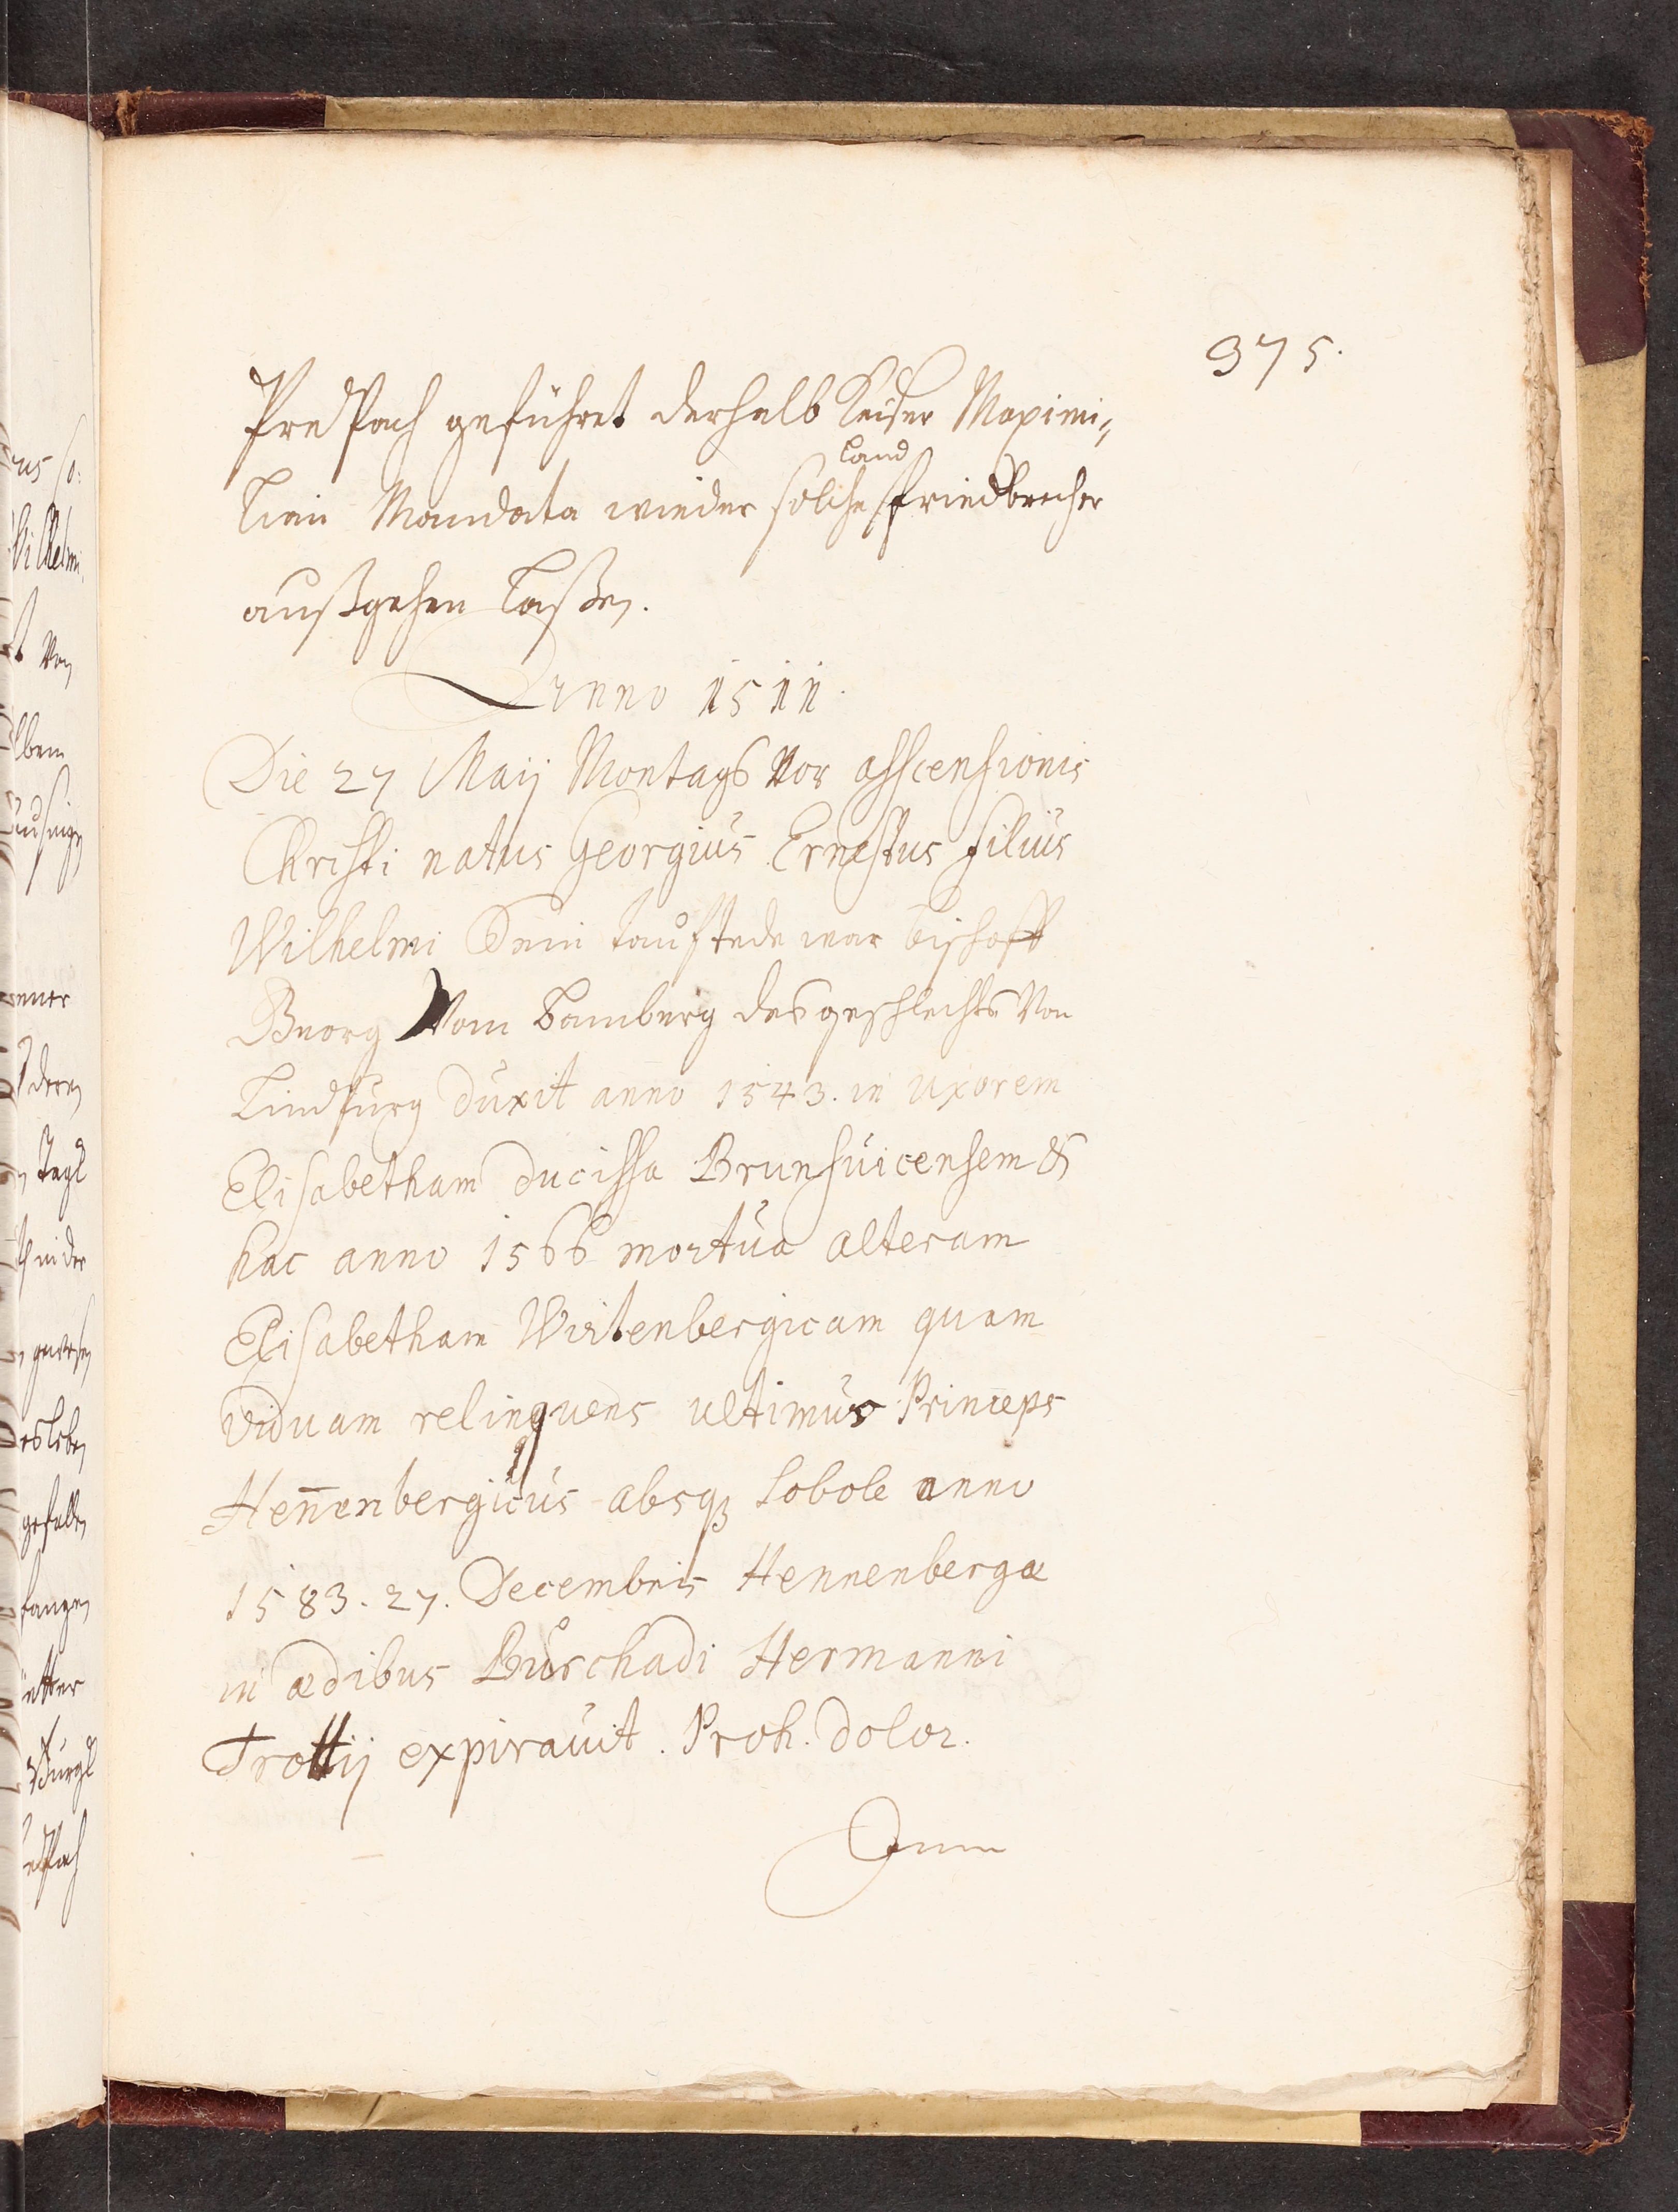 375.
geführet derhalb Keiser Maximi„
lian Mandata wieder solche Land friedbrecher
außgehen laßen.
Anno 1511.
Die 27 Maij Montags Vor asscensionis
Christi natus Georgius Ernestus filius
Wilhelmi Sein war bischoff
Georg Vom Bamberg des geschlechts Von
Limburg duxit anno 1543. in uxorem
Elisabetham ducissa Brunsuicensem &
hac anno 1566 mortua alteram
Elisabetham Wirtenbergicam quam
viduam relinquens ultimus Princeps
Hen̄enbergicus absqꝫ sobole anno
1583. 27. Decembris Hennenbergæ
in ædibus Burchadi Hermanni
Trottij expirauit. Proh. dolor.